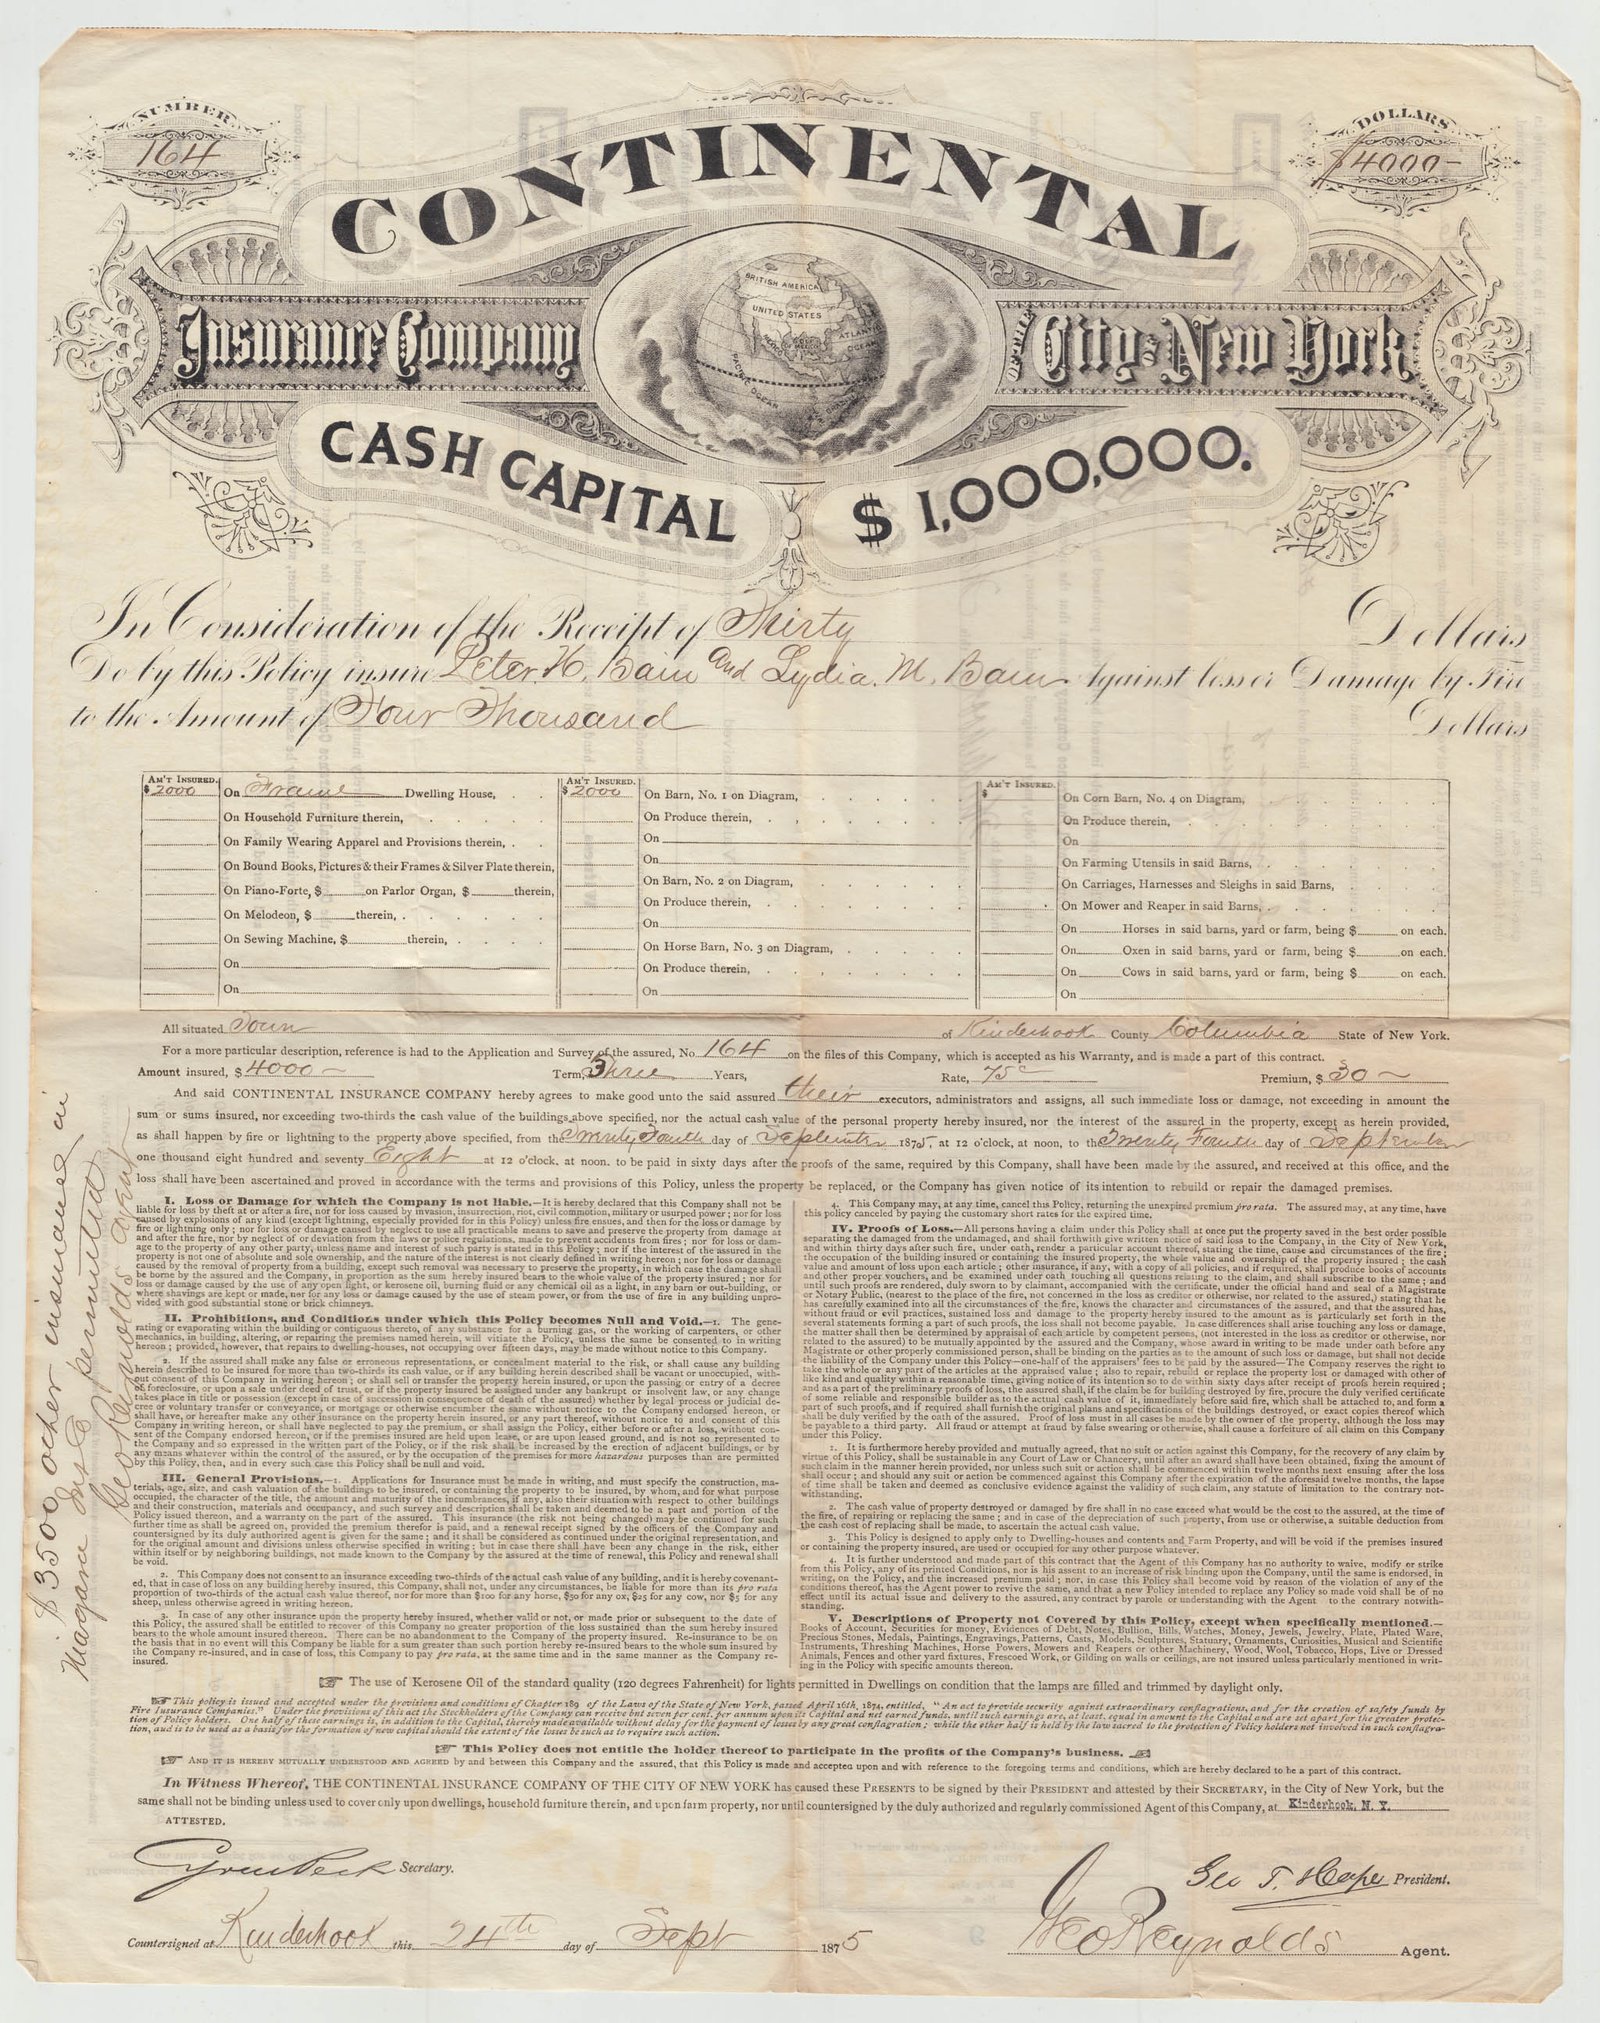 NUMBER
164
DOLLARS
$4000-
CONTINENTAL
Insurance Company
OF THE
City OF New York
BRITISH AMERICA
UNITED STATES
ATLANTIC
OCEAN
PACIFIC
OCEAN
CASH CAPITAL
$ 1,000,000.
In Consideration of the Receipt of Thirty Dollars
Do by this Policy insure Peter. H. Bain and Lydia. M. Bain Against loss or Damage by Fire
to the Amount of Four Thousand Dollars
AM'T INSURED.
$ 2000 On Frame Dwelling House,
On Household Furniture therein,
On Family Wearing Apparel and Provisions therein,
On Bound Books, Pictures & their Frames & Silver Plate therein,
On Piano-Forte, $ on Parlor Organ, $ therein,
On Melodeon, $ therein,
On Sewing Machine, $ therein,
On
On
AM'T INSURED.
$ 2000 On Barn, No. 1 on Diagram,
On Produce therein,
On
On
On Barn, No. 2 on Diagram,
On Produce therein,
On
On Horse Barn, No. 3 on Diagram,
On Produce therein,
On
AM'T INSURED.
$ On Corn Barn, No. 4 on Diagram,
On Produce therein,
On
On Farming Utensils in said Barns,
On Carriages, Harnesses and Sleighs in said Barns,
On Mower and Reaper in said Barns,
On Horses in said barns, yard or farm, being $ on each.
On Oxen in said barns, yard or farm, being $ on each.
On Cows in said barns, yard or farm, being $ on each.
On
All situated Town of Kinderhook County Columbia State of New York.
For a more particular description, reference is had to the Application and Survey of the assured, No 164 on the files of this Company, which is accepted as his Warranty, and is made a part of this contract.
Amount insured, $ 4000 Term, Three Years, Rate, 75c Premium, $ 30
And said CONTINENTAL INSURANCE COMPANY hereby agrees to make good unto the said assured their executors, administrators and assigns, all such immediate loss or damage, not exceeding in amount the
sum or sums insured, nor exceeding two-thirds the cash value of the buildings above specified, nor the actual cash value of the personal property hereby insured, nor the interest of the assured in the property, except as herein provided,
as shall happen by fire or lightning to the property above specified, from the Twenty Fourth day of September 1875, at 12 o'clock, at noon, to the Twenty Fourth day of September
one thousand eight hundred and seventy Eight at 12 o'clock. at noon. to be paid in sixty days after the proofs of the same, required by this Company, shall have been made by the assured, and received at this office, and the
loss shall have been ascertained and proved in accordance with the terms and provisions of this Policy, unless the property be replaced, or the Company has given notice of its intention to rebuild or repair the damaged premises.
I. Loss or Damage for which the Company is not liable.—It is hereby declared that this Company shall not be
liable for loss by theft at or after a fire, nor for loss caused by invasion, insurrection, riot, civil commotion, military or usurped power; nor for loss
caused by explosions of any kind (except lightning, especially provided for in this Policy) unless fire ensues, and then for the loss or damage by
fire or lightning only; nor for loss or damage caused by neglect to use all practicable means to save and preserve the property from damage at
and after the fire, nor by neglect of or deviation from the laws or police regulations, made to prevent accidents from fires; nor for loss or dam-
age to the property of any other party, unless name and interest of such party is stated in this Policy; nor if the interest of the assured in the
property is not one of absolute and sole ownership, and the nature of the interest is not clearly defined in writing hereon; nor for loss or damage
caused by the removal of property from a building, except such removal was necessary to preserve the property, in which case the damage shall
be borne by the assured and the Company, in proportion as the sum hereby insured bears to the whole value of the property insured; nor for
loss or damage caused by the use of any open light, or kerosene oil, burning fluid or any chemical oil as a light, in any barn or out-building, or
where shavings are kept or made, nor for any loss or damage caused by the use of steam power, or from the use of fire in any building unpro-
vided with good substantial stone or brick chimneys.
II. Prohibitions, and Conditions under which this Policy becomes Null and Void.—1. The gene-
rating or evaporating within the building or contiguous thereto, of any substance for a burning gas, or the working of carpenters, or other
mechanics, in building, altering, or repairing the premises named herein, will vitiate the Policy, unless the same be consented to in writing
hereon; provided, however, that repairs to dwelling-houses, not occupying over fifteen days, may be made without notice to this Company.
2. If the assured shall make any false or erroneous representations, or concealment material to the risk, or shall cause any building
herein described to be insured for more than two-thirds its cash value, or if any building herein described shall be vacant or unoccupied, with-
out consent of this Company in writing hereon; or shall sell or transfer the property herein insured, or upon the passing or entry of a decree
of foreclosure, or upon a sale under deed of trust, or if the property insured be assigned under any bankrupt or insolvent law, or any change
takes place in title or possession (except in case of succession in consequence of death of the assured) whether by legal process or judicial de-
cree or voluntary transfer or conveyance, or mortgage or otherwise encumber the same without notice to the Company endorsed hereon, or
shall have, or hereafter make any other insurance on the property herein insured, or any part thereof, without notice to and consent of this
Company in writing hereon, or shall have neglected to pay the premium, or shall assign the Policy, either before or after a loss, without con-
sent of the Company endorsed hereon, or if the premises insured are held upon lease, or are upon leased ground, and is not so represented to
the Company and so expressed in the written part of the Policy, or if the risk shall be increased by the erection of adjacent buildings, or by
any means whatever within the control of the assured, or by the occupation of the premises for more hazardous purposes than are permitted
by this Policy, then, and in every such case this Policy shall be null and void.
III. General Provisions.—1. Applications for Insurance must be made in writing, and must specify the construction, ma-
terials, age, size, and cash valuation of the buildings to be insured, or containing the property to be insured, by whom, and for what purpose
occupied, the character of the title, the amount and maturity of the incumbrances, if any, also their situation with respect to other buildings
and their construction, materials and occupancy, and such survey and description shall be taken and deemed to be a part and portion of the
Policy issued thereon, and a warranty on the part of the assured. This insurance (the risk not being changed) may be continued for such
further time as shall be agreed on, provided the premium therefor is paid, and a renewal receipt signed by the officers of the Company and
countersigned by its duly authorized agent is given for the same; and it shall be considered as continued under the original representation, and
for the original amount and divisions unless otherwise specified in writing; but in case there shall have been any change in the risk, either
within itself or by neighboring buildings, not made known to the Company by the assured at the time of renewal, this Policy and renewal shall
be void.
2. This Company does not consent to an insurance exceeding two-thirds of the actual cash value of any building, and it is hereby covenant-
ed, that in case of loss on any building hereby insured, this Company, shall not, under any circumstances, be liable for more than its pro rata
proportion of two-thirds of the actual cash value thereof, nor for more than $100 for any horse, $50 for any ox, $25 for any cow, nor $5 for any
sheep, unless otherwise agreed in writing hereon.
3. In case of any other insurance upon the property hereby insured, whether valid or not, or made prior or subsequent to the date of
this Policy, the assured shall be entitled to recover of this Company no greater proportion of the loss sustained than the sum hereby insured
bears to the whole amount insured thereon. There can be no abandonment to the Company of the property insured. Re-insurance to be on
the basis that in no event will this Company be liable for a sum greater than such portion hereby re-insured bears to the whole sum insured by
the Company re-insured, and in case of loss, this Company to pay pro rata, at the same time and in the same manner as the Company re-
insured.
4. This Company may, at any time, cancel this Policy, returning the unexpired premium pro rata. The assured may, at any time, have
this policy canceled by paying the customary short rates for the expired time.
IV. Proofs of Loss.—All persons having a claim under this Policy shall at once put the property saved in the best order possible
separating the damaged from the undamaged, and shall forthwith give written notice of said loss to the Company, in the City of New York,
and within thirty days after such fire, under oath, render a particular account thereof, stating the time, cause and circumstances of the fire;
the occupation of the building insured or containing the insured property, the whole value and ownership of the property insured; the cash
value and amount of loss upon each article; other insurance, if any, with a copy of all policies, and if required, shall produce books of accounts
and other proper vouchers, and be examined under oath touching all questions relating to the claim, and shall subscribe to the same; and
until such proofs are rendered, duly sworn to by claimant, accompanied with the certificate, under the official hand and seal of a Magistrate
or Notary Public, (nearest to the place of the fire, not concerned in the loss as creditor or otherwise, nor related to the assured,) stating that he
has carefully examined into all the circumstances of the fire, knows the character and circumstances of the assured, and that the assured has,
without fraud or evil practices, sustained loss and damage to the property hereby insured to the amount as is particularly set forth in the
several statements forming a part of such proofs, the loss shall not become payable. In case differences shall arise touching any loss or damage,
the matter shall then be determined by appraisal of each article by competent persons, (not interested in the loss as creditor or otherwise, nor
related to the assured) to be mutually appointed by the assured and the Company, whose award in writing to be made under oath before any
Magistrate or other properly commissioned person, shall be binding on the parties as to the amount of such loss or damage, but shall not decide
the liability of the Company under this Policy—one-half of the appraisers' fees to be paid by the assured—The Company reserves the right to
take the whole or any part of the articles at the appraised value; also to repair, rebuild or replace the property lost or damaged with other of
like kind and quality within a reasonable time, giving notice of its intention so to do within sixty days after receipt of proofs herein required;
and as a part of the preliminary proofs of loss, the assured shall, if the claim be for building destroyed by fire, procure the duly verified certificate
of some reliable and responsible builder as to the actual cash value of it, immediately before said fire, which shall be attached to, and form a
part of such proofs, and if required shall furnish the original plans and specifications of the buildings destroyed, or exact copies thereof which
shall be duly verified by the oath of the assured. Proof of loss must in all cases be made by the owner of the property, although the loss may
be payable to a third party. All fraud or attempt at fraud by false swearing or otherwise, shall cause a forfeiture of all claim on this Company
under this Policy.
1. It is furthermore hereby provided and mutually agreed, that no suit or action against this Company, for the recovery of any claim by
virtue of this Policy, shall be sustainable in any Court of Law or Chancery, until after an award shall have been obtained, fixing the amount of
such claim in the manner herein provided, nor unless such suit or action shall be commenced within twelve months next ensuing after the loss
shall occur; and should any suit or action be commenced against this Company after the expiration of the aforesaid twelve months, the lapse
of time shall be taken and deemed as conclusive evidence against the validity of such claim, any statute of limitation to the contrary not-
withstanding.
2. The cash value of property destroyed or damaged by fire shall in no case exceed what would be the cost to the assured, at the time of
the fire, of repairing or replacing the same; and in case of the depreciation of such property, from use or otherwise, a suitable deduction from
the cash cost of replacing shall be made, to ascertain the actual cash value.
3. This Policy is designed to apply only to Dwelling-houses and contents and Farm Property, and will be void if the premises insured
or containing the property insured, are used or occupied for any other purpose whatever.
4. It is further understood and made part of this contract that the Agent of this Company has no authority to waive, modify or strike
from this Policy, any of its printed Conditions, nor is his assent to an increase of risk binding upon the Company, until the same is endorsed, in
writing, on the Policy, and the increased premium paid; nor, in case this Policy shall become void by reason of the violation of any of the
conditions thereof, has the Agent power to revive the same, and that a new Policy intended to replace any Policy so made void shall be of no
effect until its actual issue and delivery to the assured, any contract by parole or understanding with the Agent to the contrary notwith-
standing.
V. Descriptions of Property not Covered by this Policy, except when specifically mentioned.—
Books of Account, Securities for money, Evidences of Debt, Notes, Bullion, Bills, Watches, Money, Jewels, Jewelry, Plate, Plated Ware,
Precious Stones, Medals, Paintings, Engravings, Patterns, Casts, Models, Sculptures, Statuary, Ornaments, Curiosities, Musical and Scientific
Instruments, Threshing Machines, Horse Powers, Mowers and Reapers or other Machinery, Wood, Wool, Tobacco, Hops, Live or Dressed
Animals, Fences and other yard fixtures, Frescoed Work, or Gilding on walls or ceilings, are not insured unless particularly mentioned in writ-
ing in the Policy with specific amounts thereon.
The use of Kerosene Oil of the standard quality (120 degrees Fahrenheit) for lights permitted in Dwellings on condition that the lamps are filled and trimmed by daylight only.
This policy is issued and accepted under the provisions and conditions of Chapter 189 of the Laws of the State of New York, passed April 16th, 1874, entitled, "An act to provide security against extraordinary conflagrations, and for the creation of safety funds by
Fire Insurance Companies." Under the provisions of this act the Stockholders of the Company can receive but seven per cent. per annum upon its Capital and net earned funds, until such earnings are, at least, equal in amount to the Capital and are set apart for the greater protec-
tion of Policy holders. One half of these earnings is, in addition to the Capital, thereby made available without delay for the payment of losses by any great conflagration; while the other half is held by the law sacred to the protection of Policy holders not involved in such conflagra-
tion, and is to be used as a basis for the formation of new capital should the extent of the losses be such as to require such action.
This Policy does not entitle the holder thereof to participate in the profits of the Company's business.
AND IT IS HEREBY MUTUALLY UNDERSTOOD AND AGREED by and between this Company and the assured, that this Policy is made and accepted upon and with reference to the foregoing terms and conditions, which are hereby declared to be a part of this contract.
In Witness Whereof, THE CONTINENTAL INSURANCE COMPANY OF THE CITY OF NEW YORK has caused these PRESENTS to be signed by their PRESIDENT and attested by their SECRETARY, in the City of New York, but the
same shall not be binding unless used to cover only upon dwellings, household furniture therein, and upon farm property, nor until countersigned by the duly authorized and regularly commissioned Agent of this Company, at Kinderhook, N. Y.
ATTESTED.
Cyrus Peck Secretary.
Geo T. Hope President.
Countersigned at Kinderhook this 24th day of Sept 1875
Geo Reynolds Agent.
$3500 other insurance in
Niagara Ins Co permitted
Geo Reynolds agent